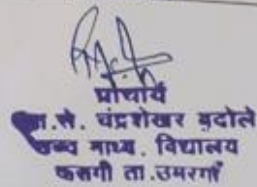 प्राचार्य
से. चंद्रशेखर बदोले
माध्य. विद्यालय
कसगी ता.उमरगाँ